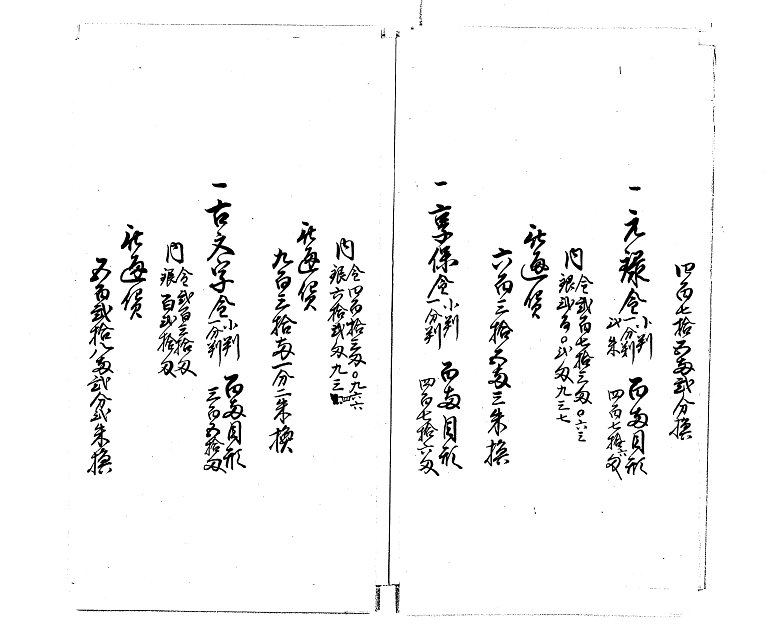 四百七拾五両弐分換
一元禄金 小判 一分判 弐朱 百両目形 四百七拾六匁
内 金弐百七拾三匁〇六三 銀弐百〇弐匁九三七
此通貨
六百三拾五両三朱換
一享保金 小判 一分判 百両目形 四百七拾六匁
内 金四百拾三匁〇九六六 銀六拾弐匁九三
此通貨
九百三拾両一分二朱換
一古文字金 小判 一分判 百両目形 三百五拾匁
内 金弐百三拾匁 銀百弐拾匁
此通貨
五百弐拾八両弐分弐朱換